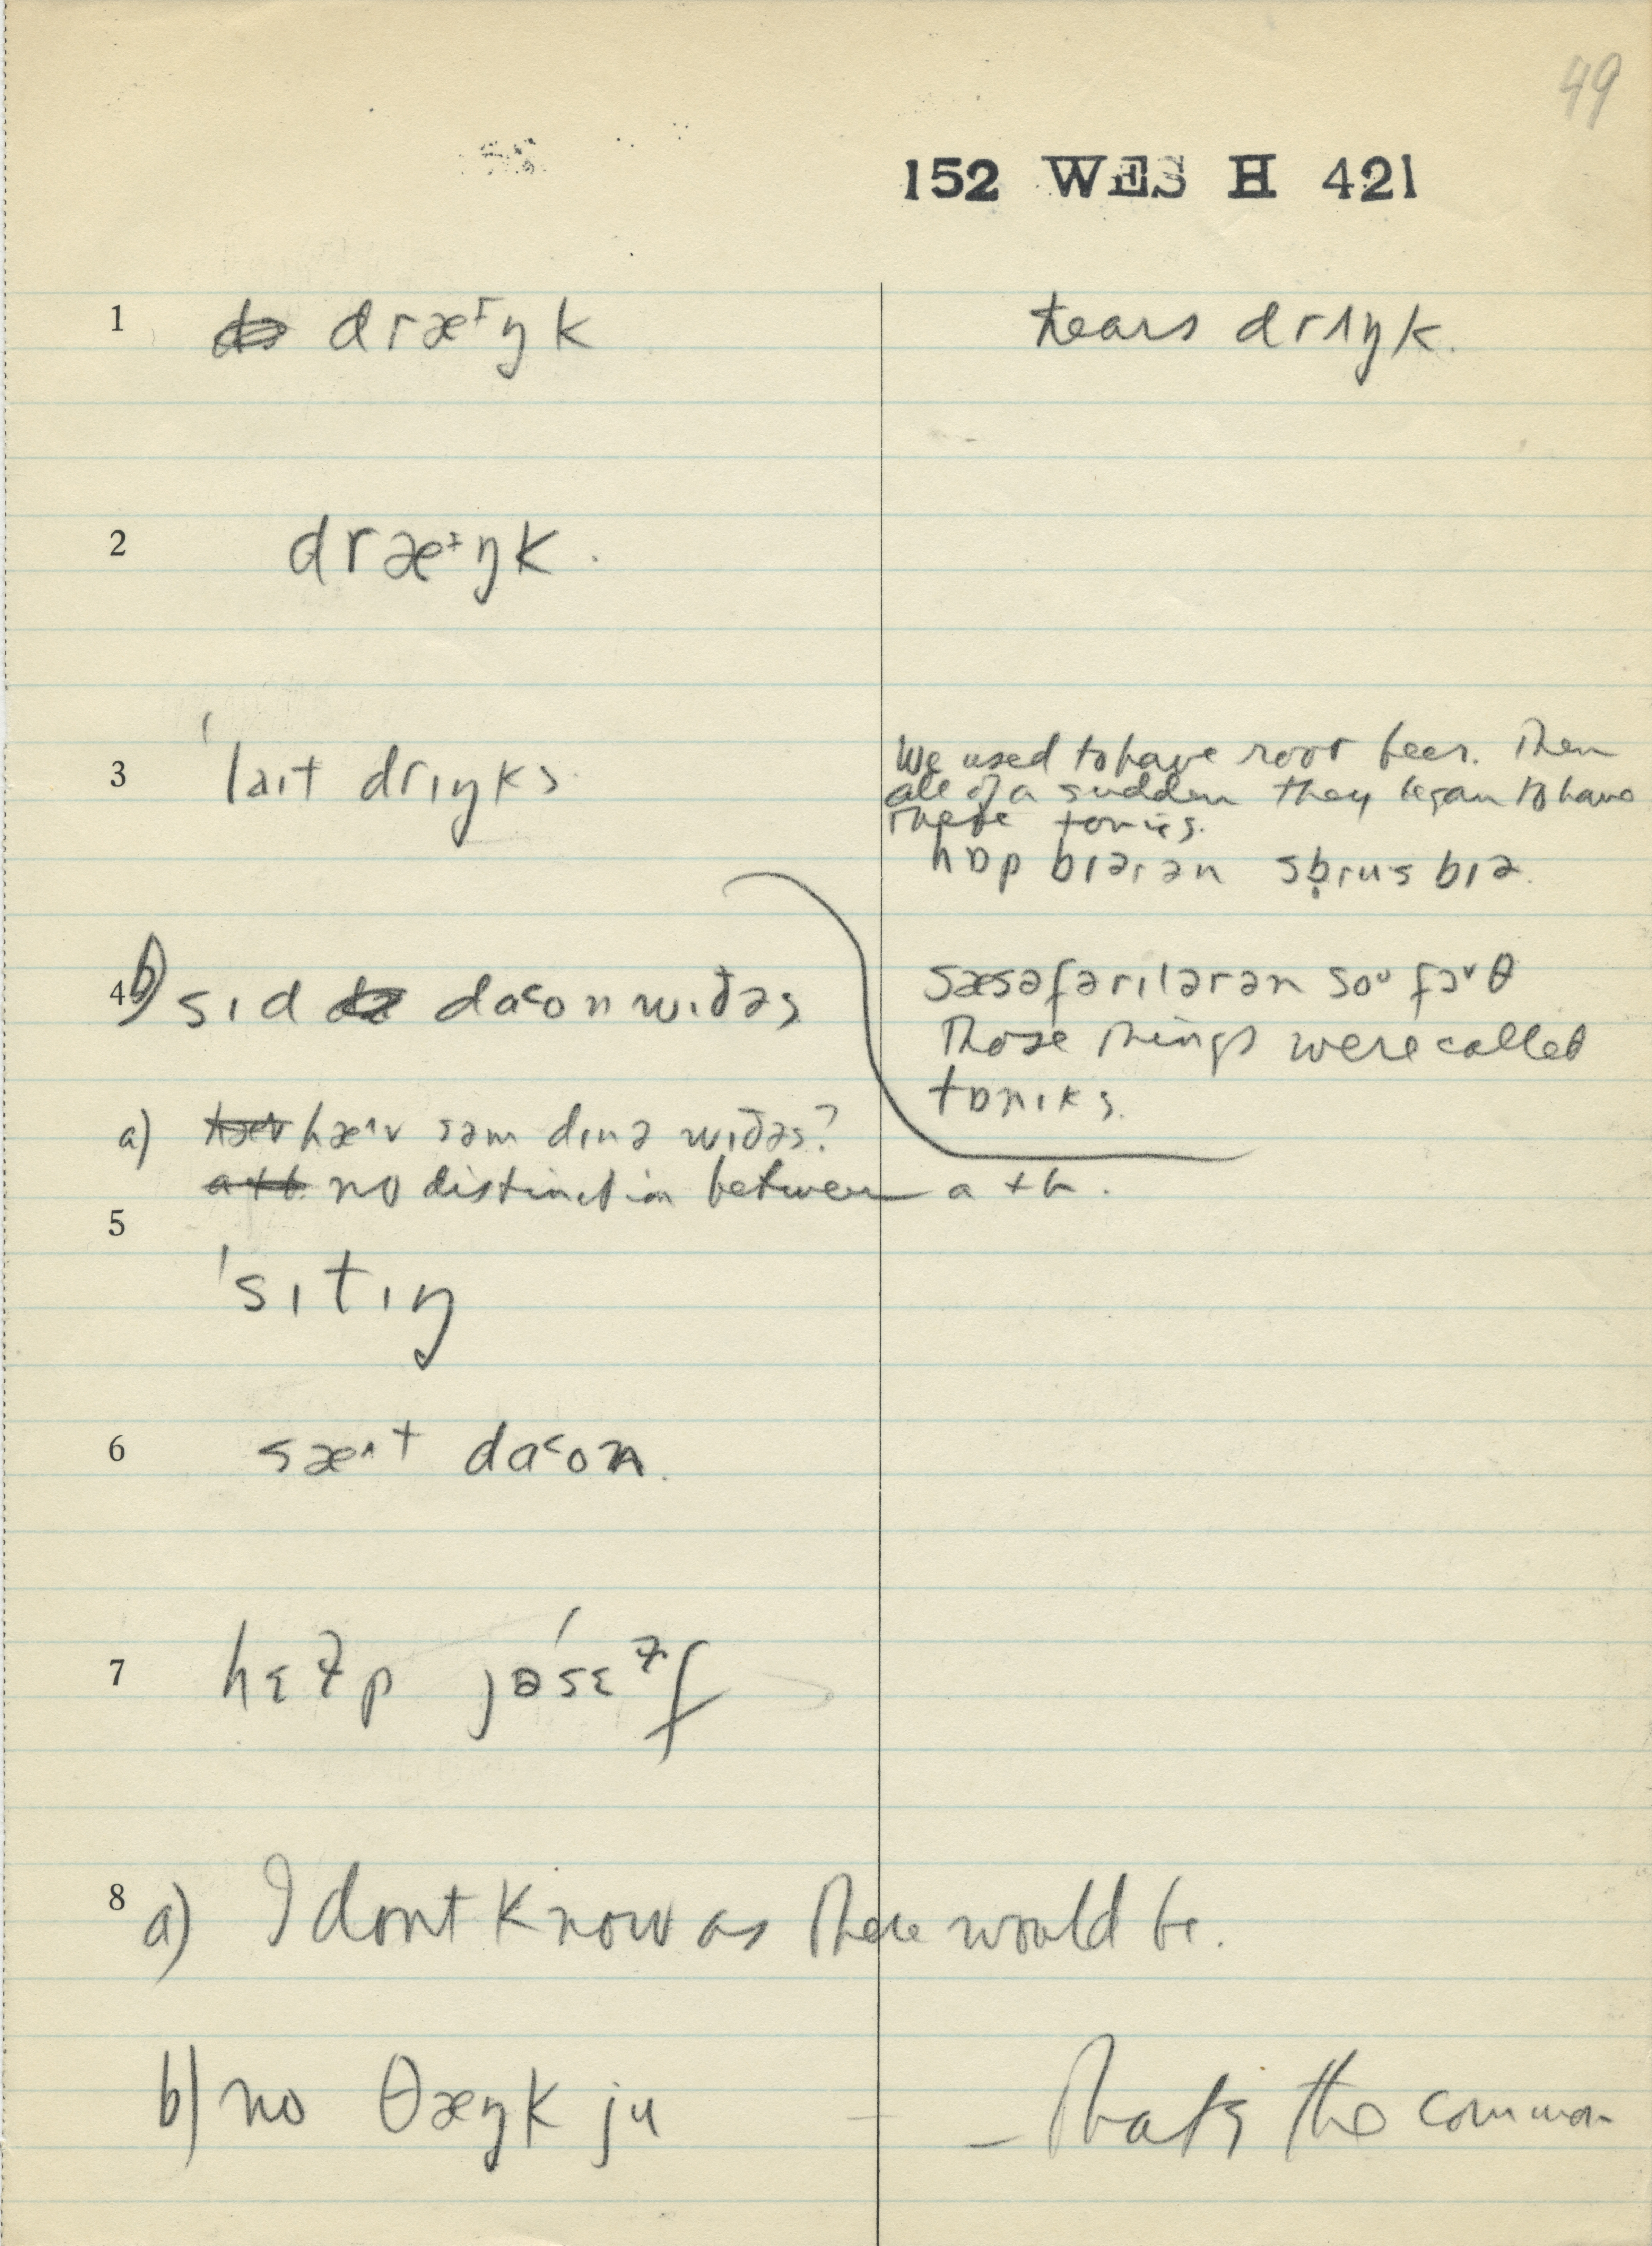 49
152 WES H 421
1 dræ˔ŋk hears drɪŋk.
2 dræ˔ŋk.
3 'laɪt drɪŋks
We used to have root beer. Then
all of a sudden they began to have
these tonics.
hɒp bɪərən sb̥rus bɪə.
4 b) sɪd da˂ᴏn wɪðəs
sæsəfərɪlərən soᵘ fɔᵛθ
Those things were called
tɒnɪks.
a) hæ˄v səm dɪnə wɪðəs?
no distinction between a + b.
5 'sɪtɪŋ
6 sæ˄t da˂ᴏn.
7 hɛɫp jəsɛ́ɫf
8 a) I dont know as there would be.
b) no θæŋk ju — That's the common